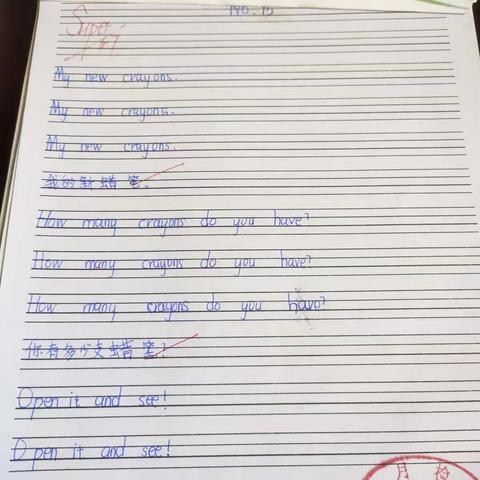 No. 15
Super
My new crayons.
My new crayons.
My new crayons.
我的新蜡笔。
How many crayons do you have?
How many crayons do you have?
How many crayons do you have?
你有多少支蜡笔?
Open it and see!
Open it and see!
月检